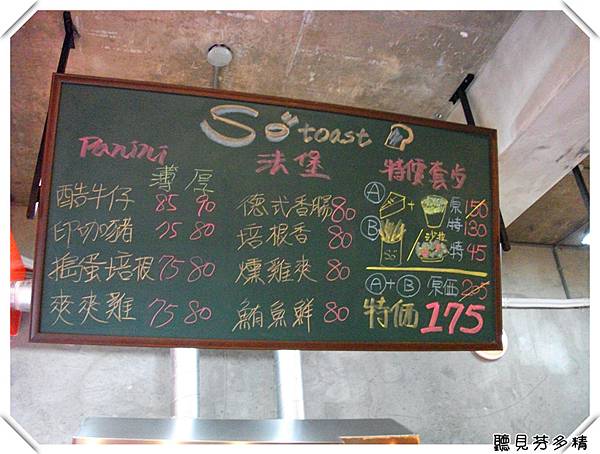 So toast
Panini
薄 厚
酷牛仔 85 90
印加豬 75 80
搗蛋培根 75 80
夾夾雞 75 80
法堡
德式香腸 80
培根香 80
燻雞夾 80
鮪魚鮮 80
特便套步
Ⓐ + 原150
特130
Ⓑ / 沙拉 特45
Ⓐ+Ⓑ 原価205
特価175
聽見芬多精